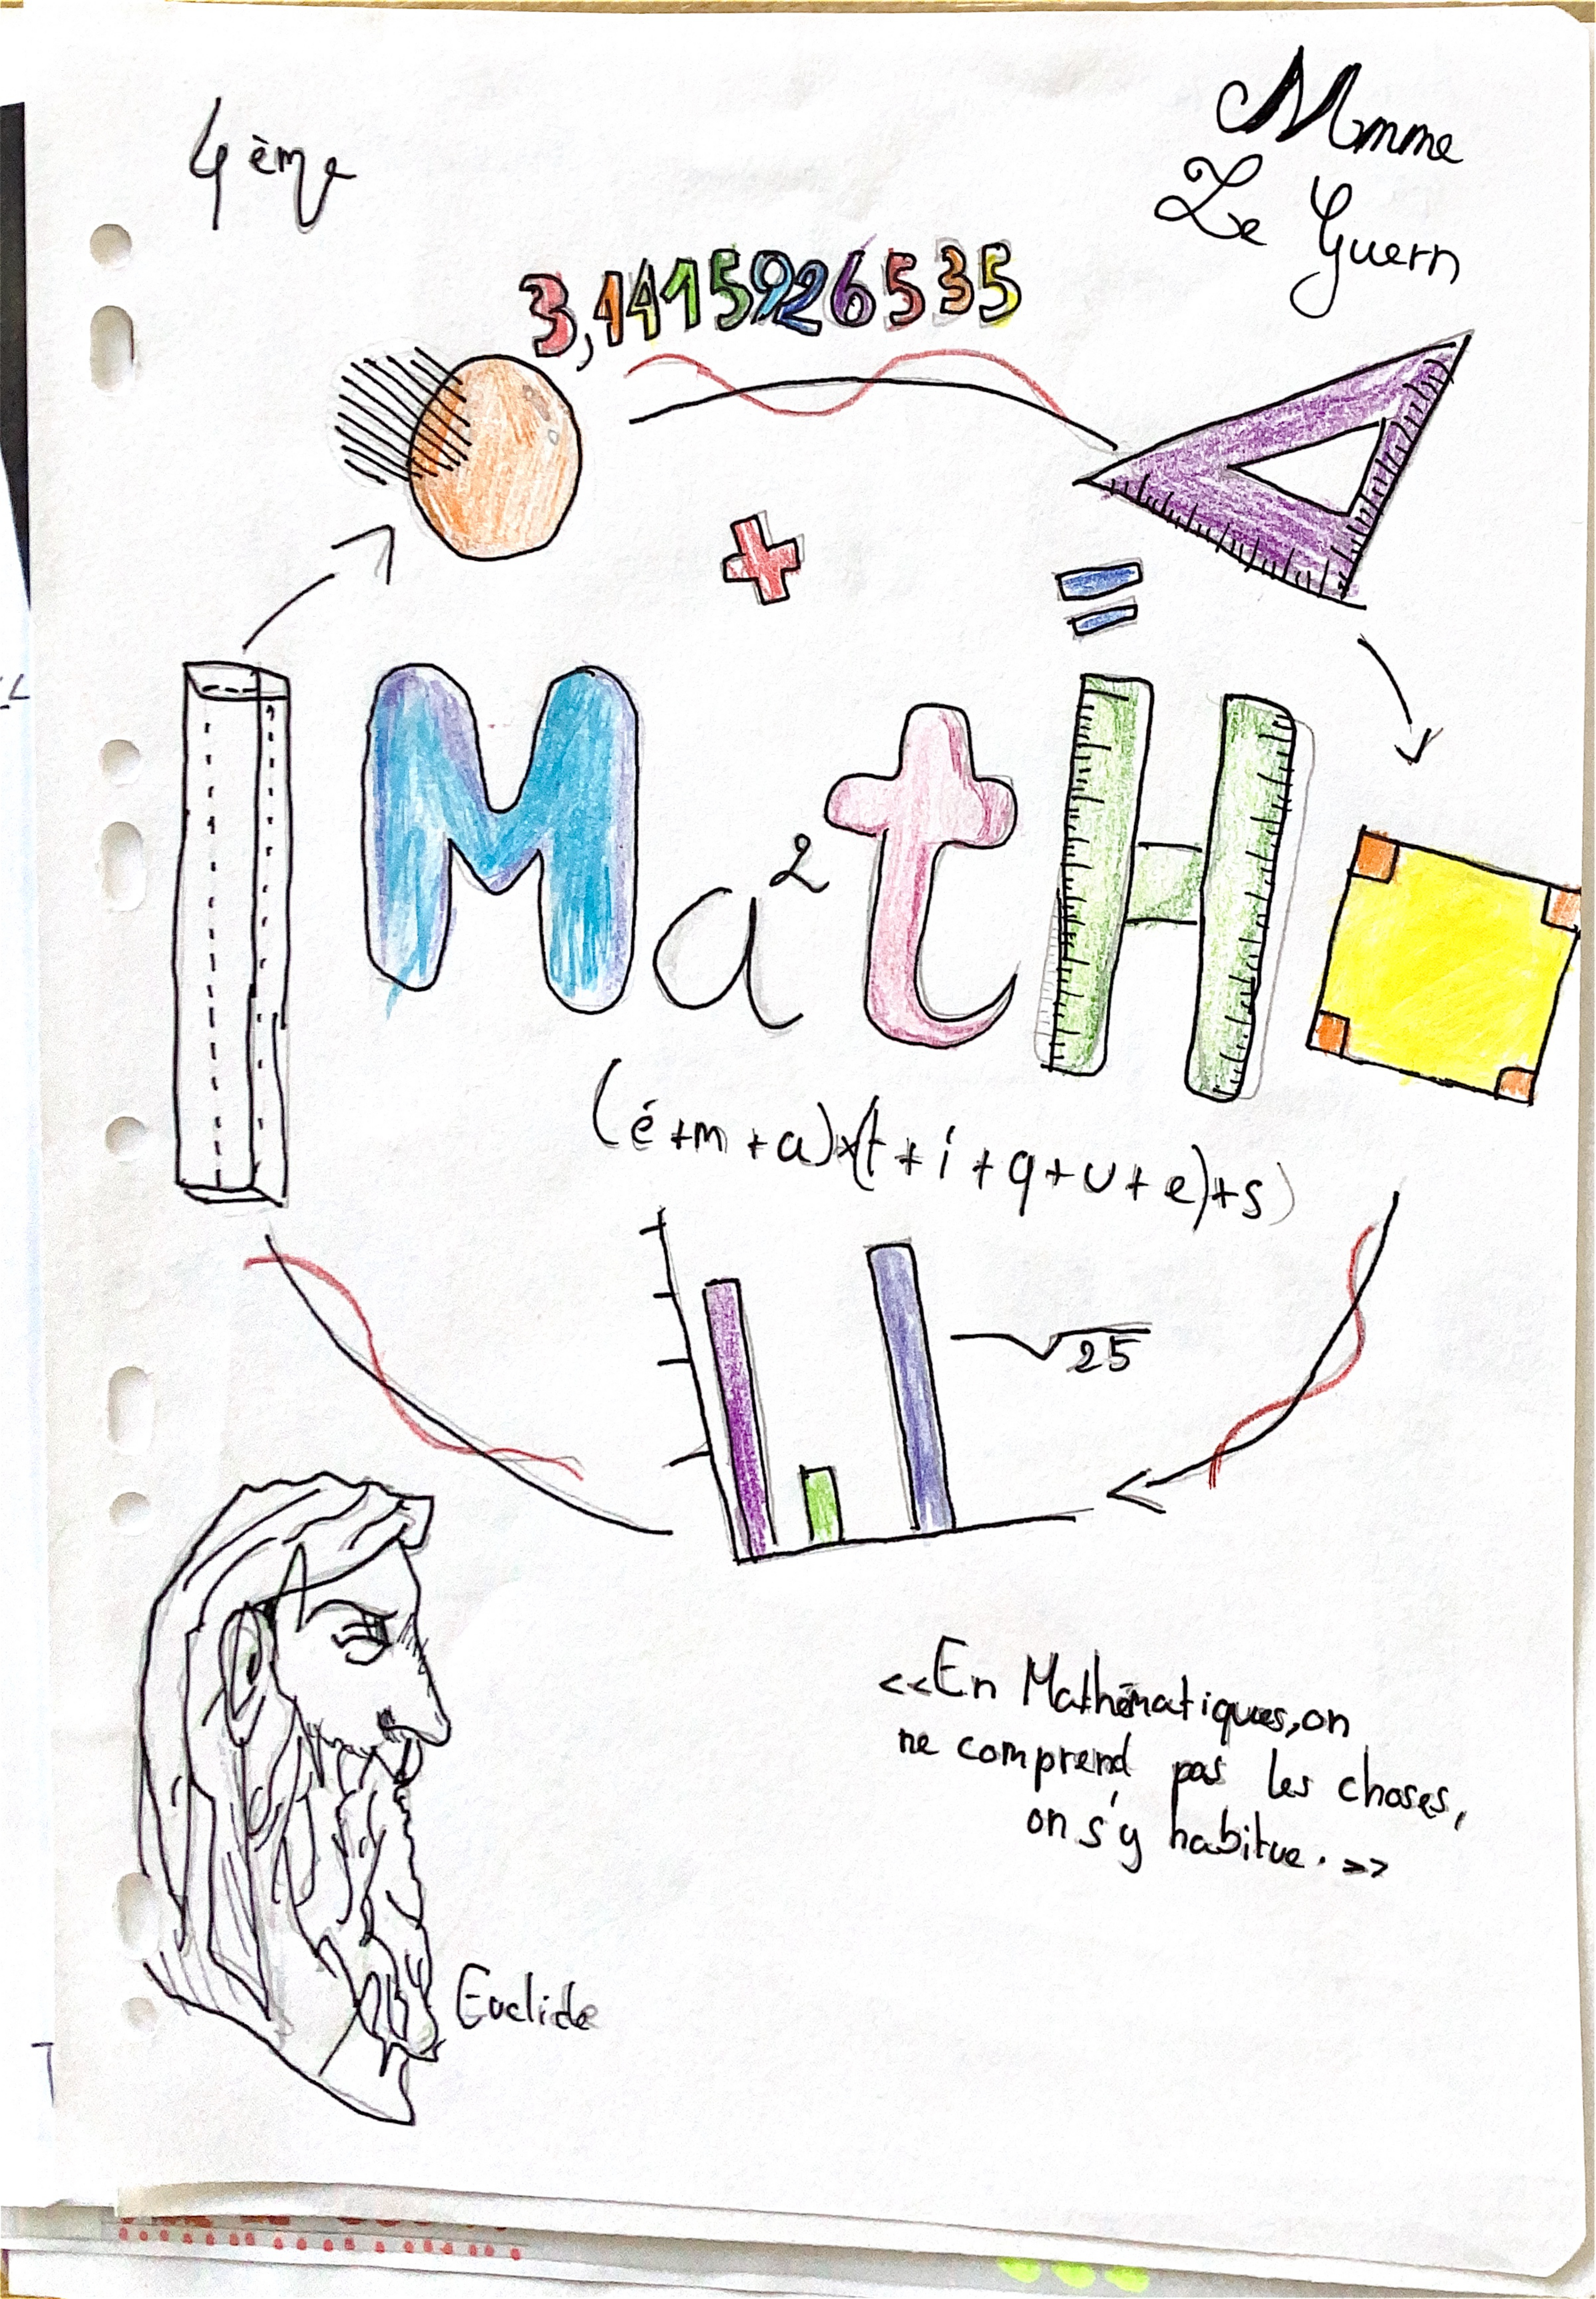 4ème
Mmme
Le Guern
3,1415926535
+
=
Ma²tH
(é+m+a)x(t+i+q+u+e)+s
√25
<<En Mathématiques, on
ne comprend pas les choses,
on s'y habitue. >>
Euclide